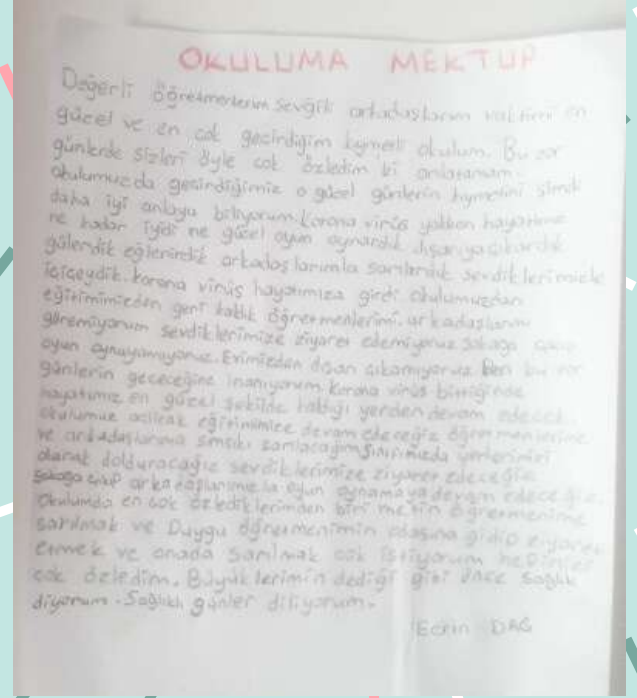 OKULUMA MEKTUP
Değerli öğretmenlerim sevgili arkadaşlarım vaktimi en
güzel ve en çok geçirdiğim kıymetli okulum. Bu zor
günlerde sizleri öyle çok özledim ki anlatamam.
okulumuzda geçirdiğimiz o güzel günlerin kıymetini şimdi
daha iyi anlaya biliyorum. Korona virüs yokken hayatımız
ne kadar iyidi ne güzel oyun oynardık dışarıya çıkardık
gülerdik eğlenirdik arkadaşlarımla sarılırdık sevdiklerimizle
içiçeydik. Korona virüs hayatımıza girdi okulumuzdan
eğitimimizden geri kaldık öğretmenlerimi, arkadaşlarımı
göremiyorum sevdiklerimize ziyaret edemiyoruz sokağa çıkıp
oyun oynayamıyoruz. Evimizden dışarı çıkamıyoruz ben bu zor
günlerin geçeceğine inanıyorum korona virüs bittiğinde
hayatımız en güzel şekilde kaldığı yerden devam edecek.
okulumuz açılacak eğitimimize devam edeceğiz öğretmenlerime
ve arkadaşlarıma sımsıkı sarılacağım sınıfımızda yerlerimizi
olarak dolduracağız sevdiklerimize ziyaret edeceğiz
sokağa çıkıp arkadaşlarımızla oyun oynamaya devam edeceğiz.
Okulumda en çok özlediklerimden biri metin öğretmenime
sarılmak ve Duygu öğretmenimin odasına gidip ziyaret
etmek ve onada sarılmak çok istiyorum hepinizi
çok özledim. Büyüklerimin dediği gibi önce sağlık
diyorum. Sağlıklı günler diliyorum.
Ecrin DAĞ